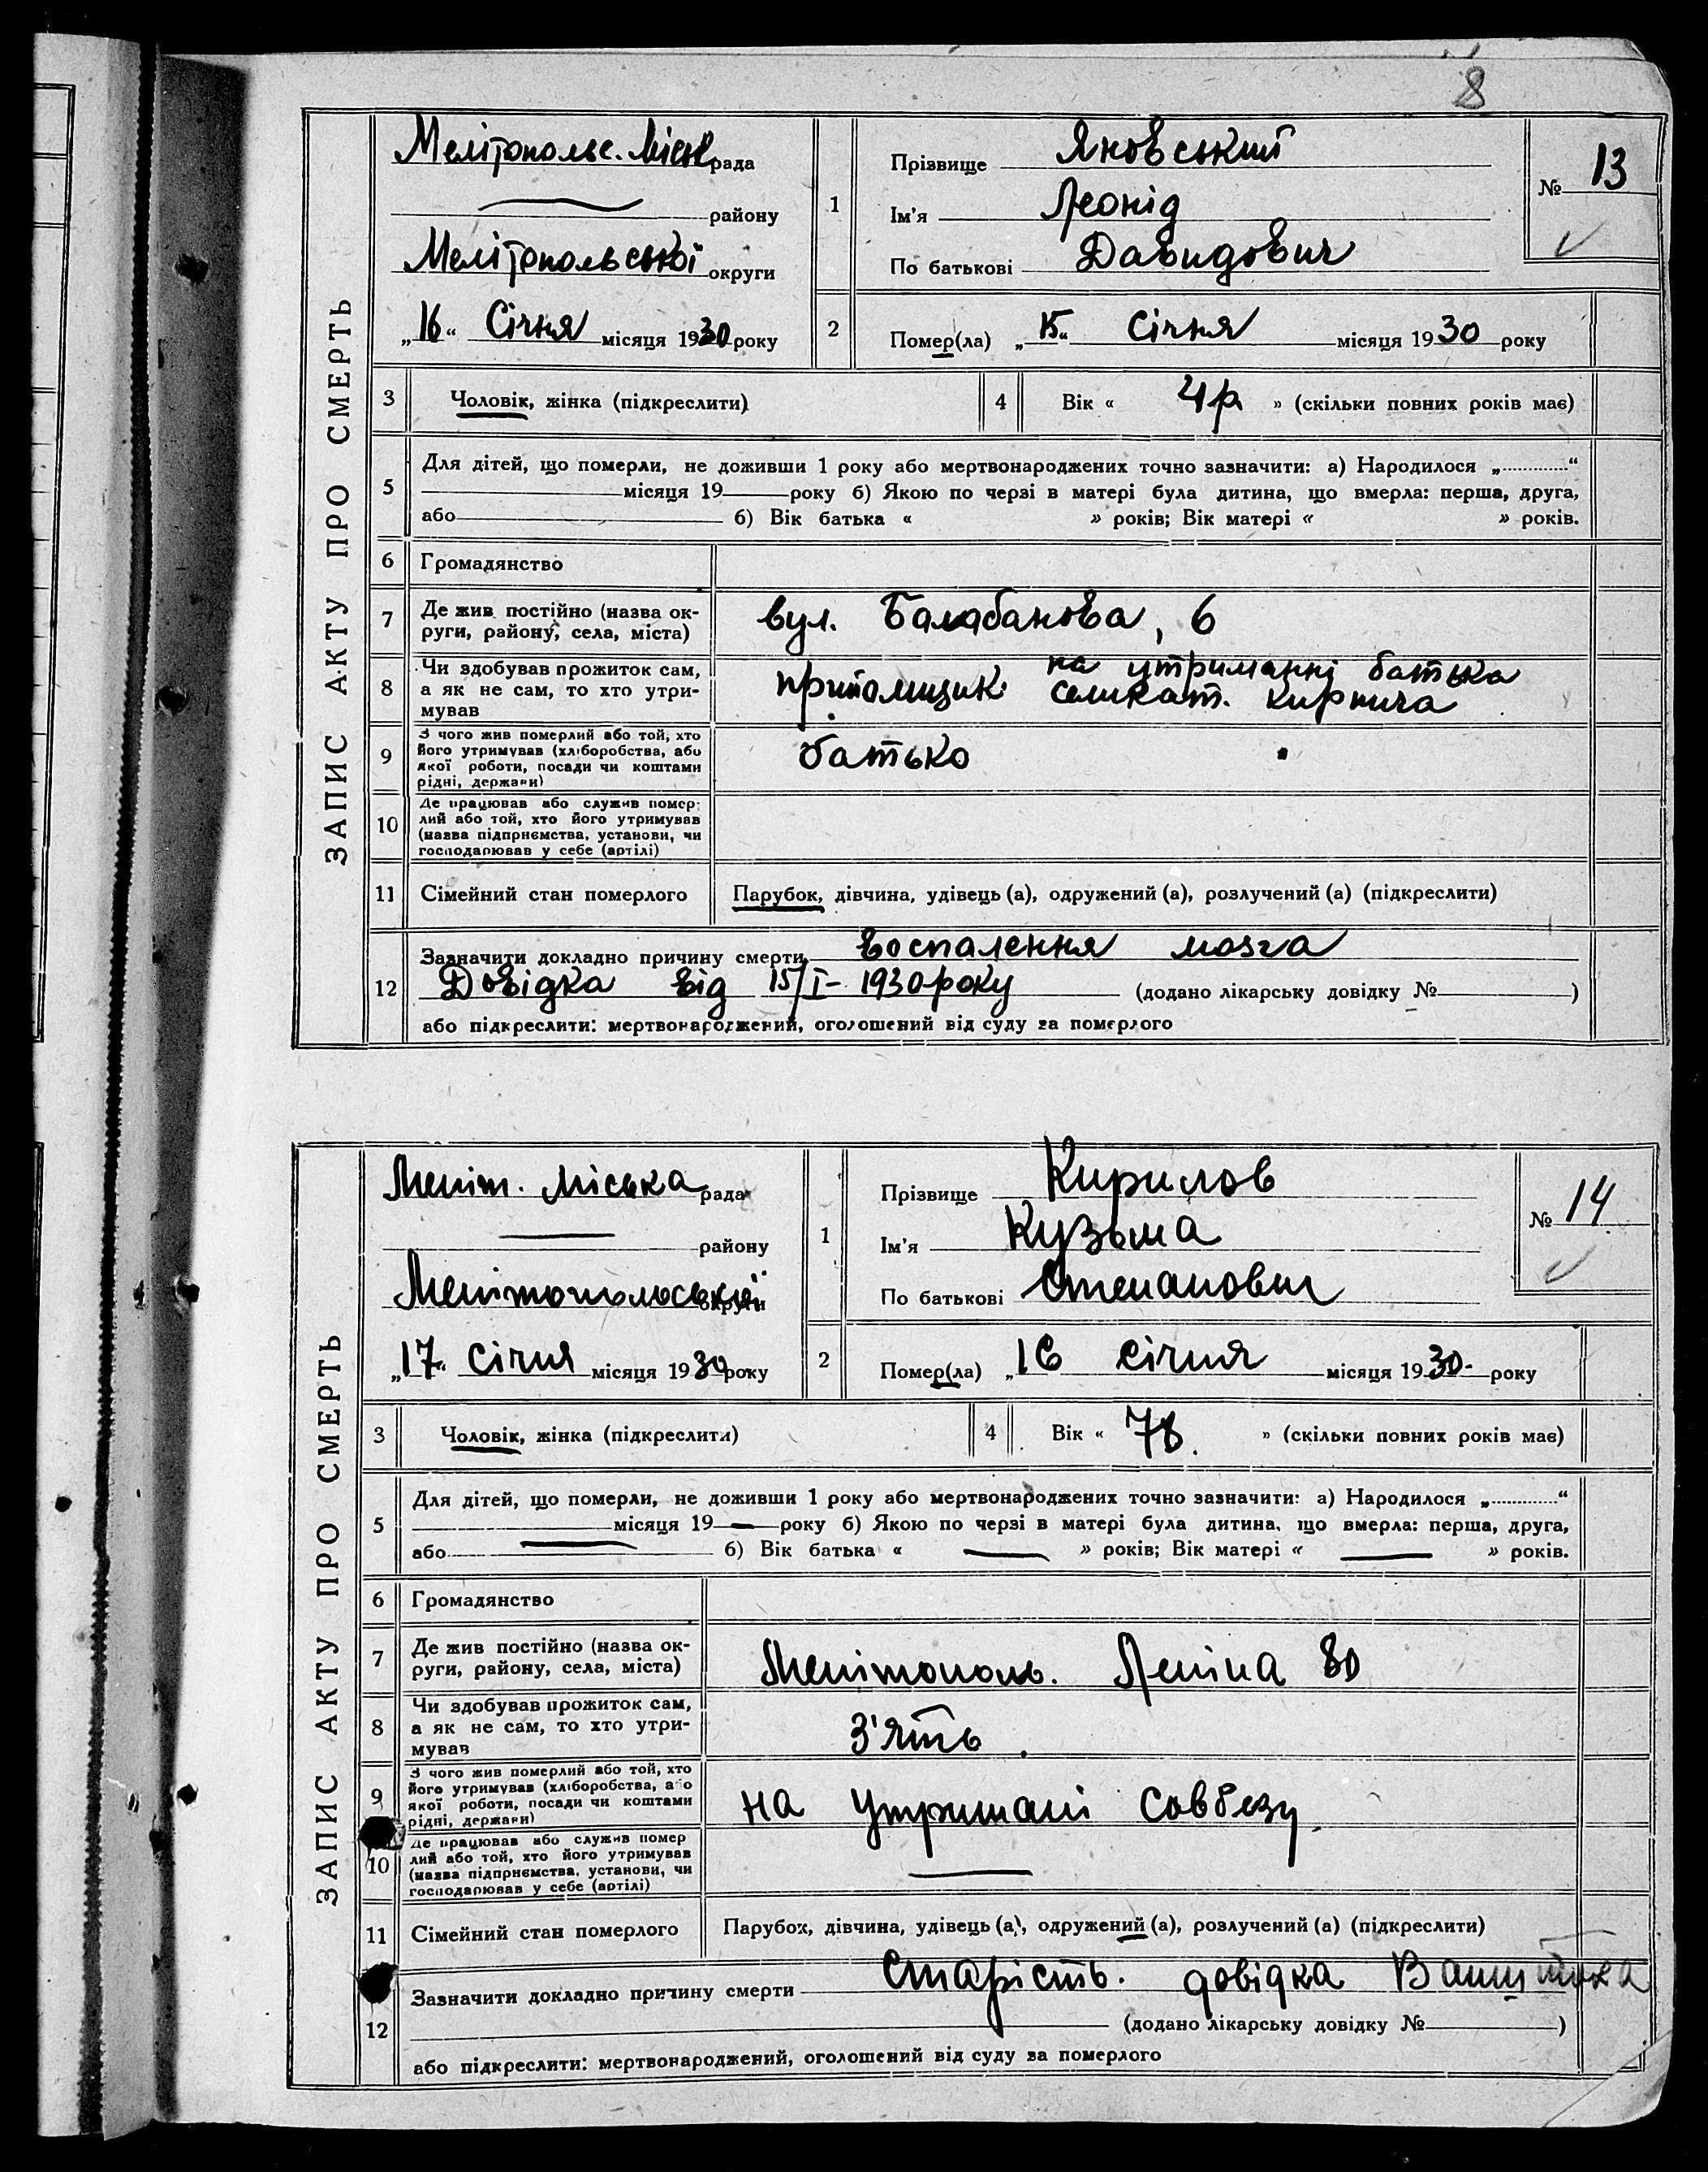 8
ЗАПИС АКТУ ПРО СМЕРТЬ
Мелітопольс. Міськ рада
району
Мелітопольської округи
„16“ Січня місяця 1930 року
1
Прізвище Яновський
Ім'я Леонід
По батькові Давидович
№ 13
2
Помер(ла) „15“ Січня місяця 1930 року
3 Чоловік, жінка (підкреслити)
4 Вік « 4р » (скільки повних років має)
5
Для дітей, що померли, не доживши 1 року або мертвонароджених точно зазначити: а) Народилося „............“
місяця 19 року б) Якою по черзі в матері була дитина, що вмерла: перша, друга,
або б) Вік батька « » років; Вік матері « » років.
6 Громадянство
7 Де жив постійно (назва ок-
руги, району, села, міста)
вул. Балабанова, 6
8 Чи здобував прожиток сам,
а як не сам, то хто утри-
мував
на утриманні батька
силкат. кирпича
9 З чого жив померлий або той, хто
його утримував (хліборобства, або
якої роботи, посади чи коштами
рідні, держави)
батько
10 Де працював або служив помер-
лий або той, хто його утримував
(назва підприємства, установи, чи
господарював у себе (артілі)
11 Сімейний стан померлого Парубок, дівчина, удівець (а), одружений (а), розлучений (а) (підкреслити)
12
Зазначити докладно причину смерти воспалення мозга
Довідка від 15/I- 1930 року (додано лікарську довідку № )
або підкреслити: мертвонароджений, оголошений від суду за померлого
ЗАПИС АКТУ ПРО СМЕРТЬ
Меліт. Міська рада
району
Мелітопольської округи
„17“ Січня місяця 1930 року
1
Прізвище Кирилов
Ім'я Кузьма
По батькові Степанович
№ 14
2
Помер(ла) „16 Січня місяця 1930- року
3 Чоловік, жінка (підкреслити)
4 Вік « 78. » (скільки повних років має)
5
Для дітей, що померли, не доживши 1 року або мертвонароджених точно зазначити: а) Народилося „............“
місяця 19 — року б) Якою по черзі в матері була дитина, що вмерла: перша, друга,
або — б) Вік батька « — » років; Вік матері « — » років.
6 Громадянство
7 Де жив постійно (назва ок-
руги, району, села, міста)
Мелітополь. Леніна 80
8 Чи здобував прожиток сам,
а як не сам, то хто утри-
мував
З'ять.
9 З чого жив померлий або той, хто
його утримував (хліборобства, або
якої роботи, посади чи коштами
рідні, держави)
на утримані Совбезу
10 Де працював або служив помер
лий або той, хто його утримував
(назва підприємства, установи, чи
господарював у себе (артілі)
—
11 Сімейний стан померлого Парубок, дівчина, удівець (а), одружений (а), розлучений (а) (підкреслити)
12
Зазначити докладно причину смерти Старість. довідка
(додано лікарську довідку № )
або підкреслити: мертвонароджений, оголошений від суду за померлого